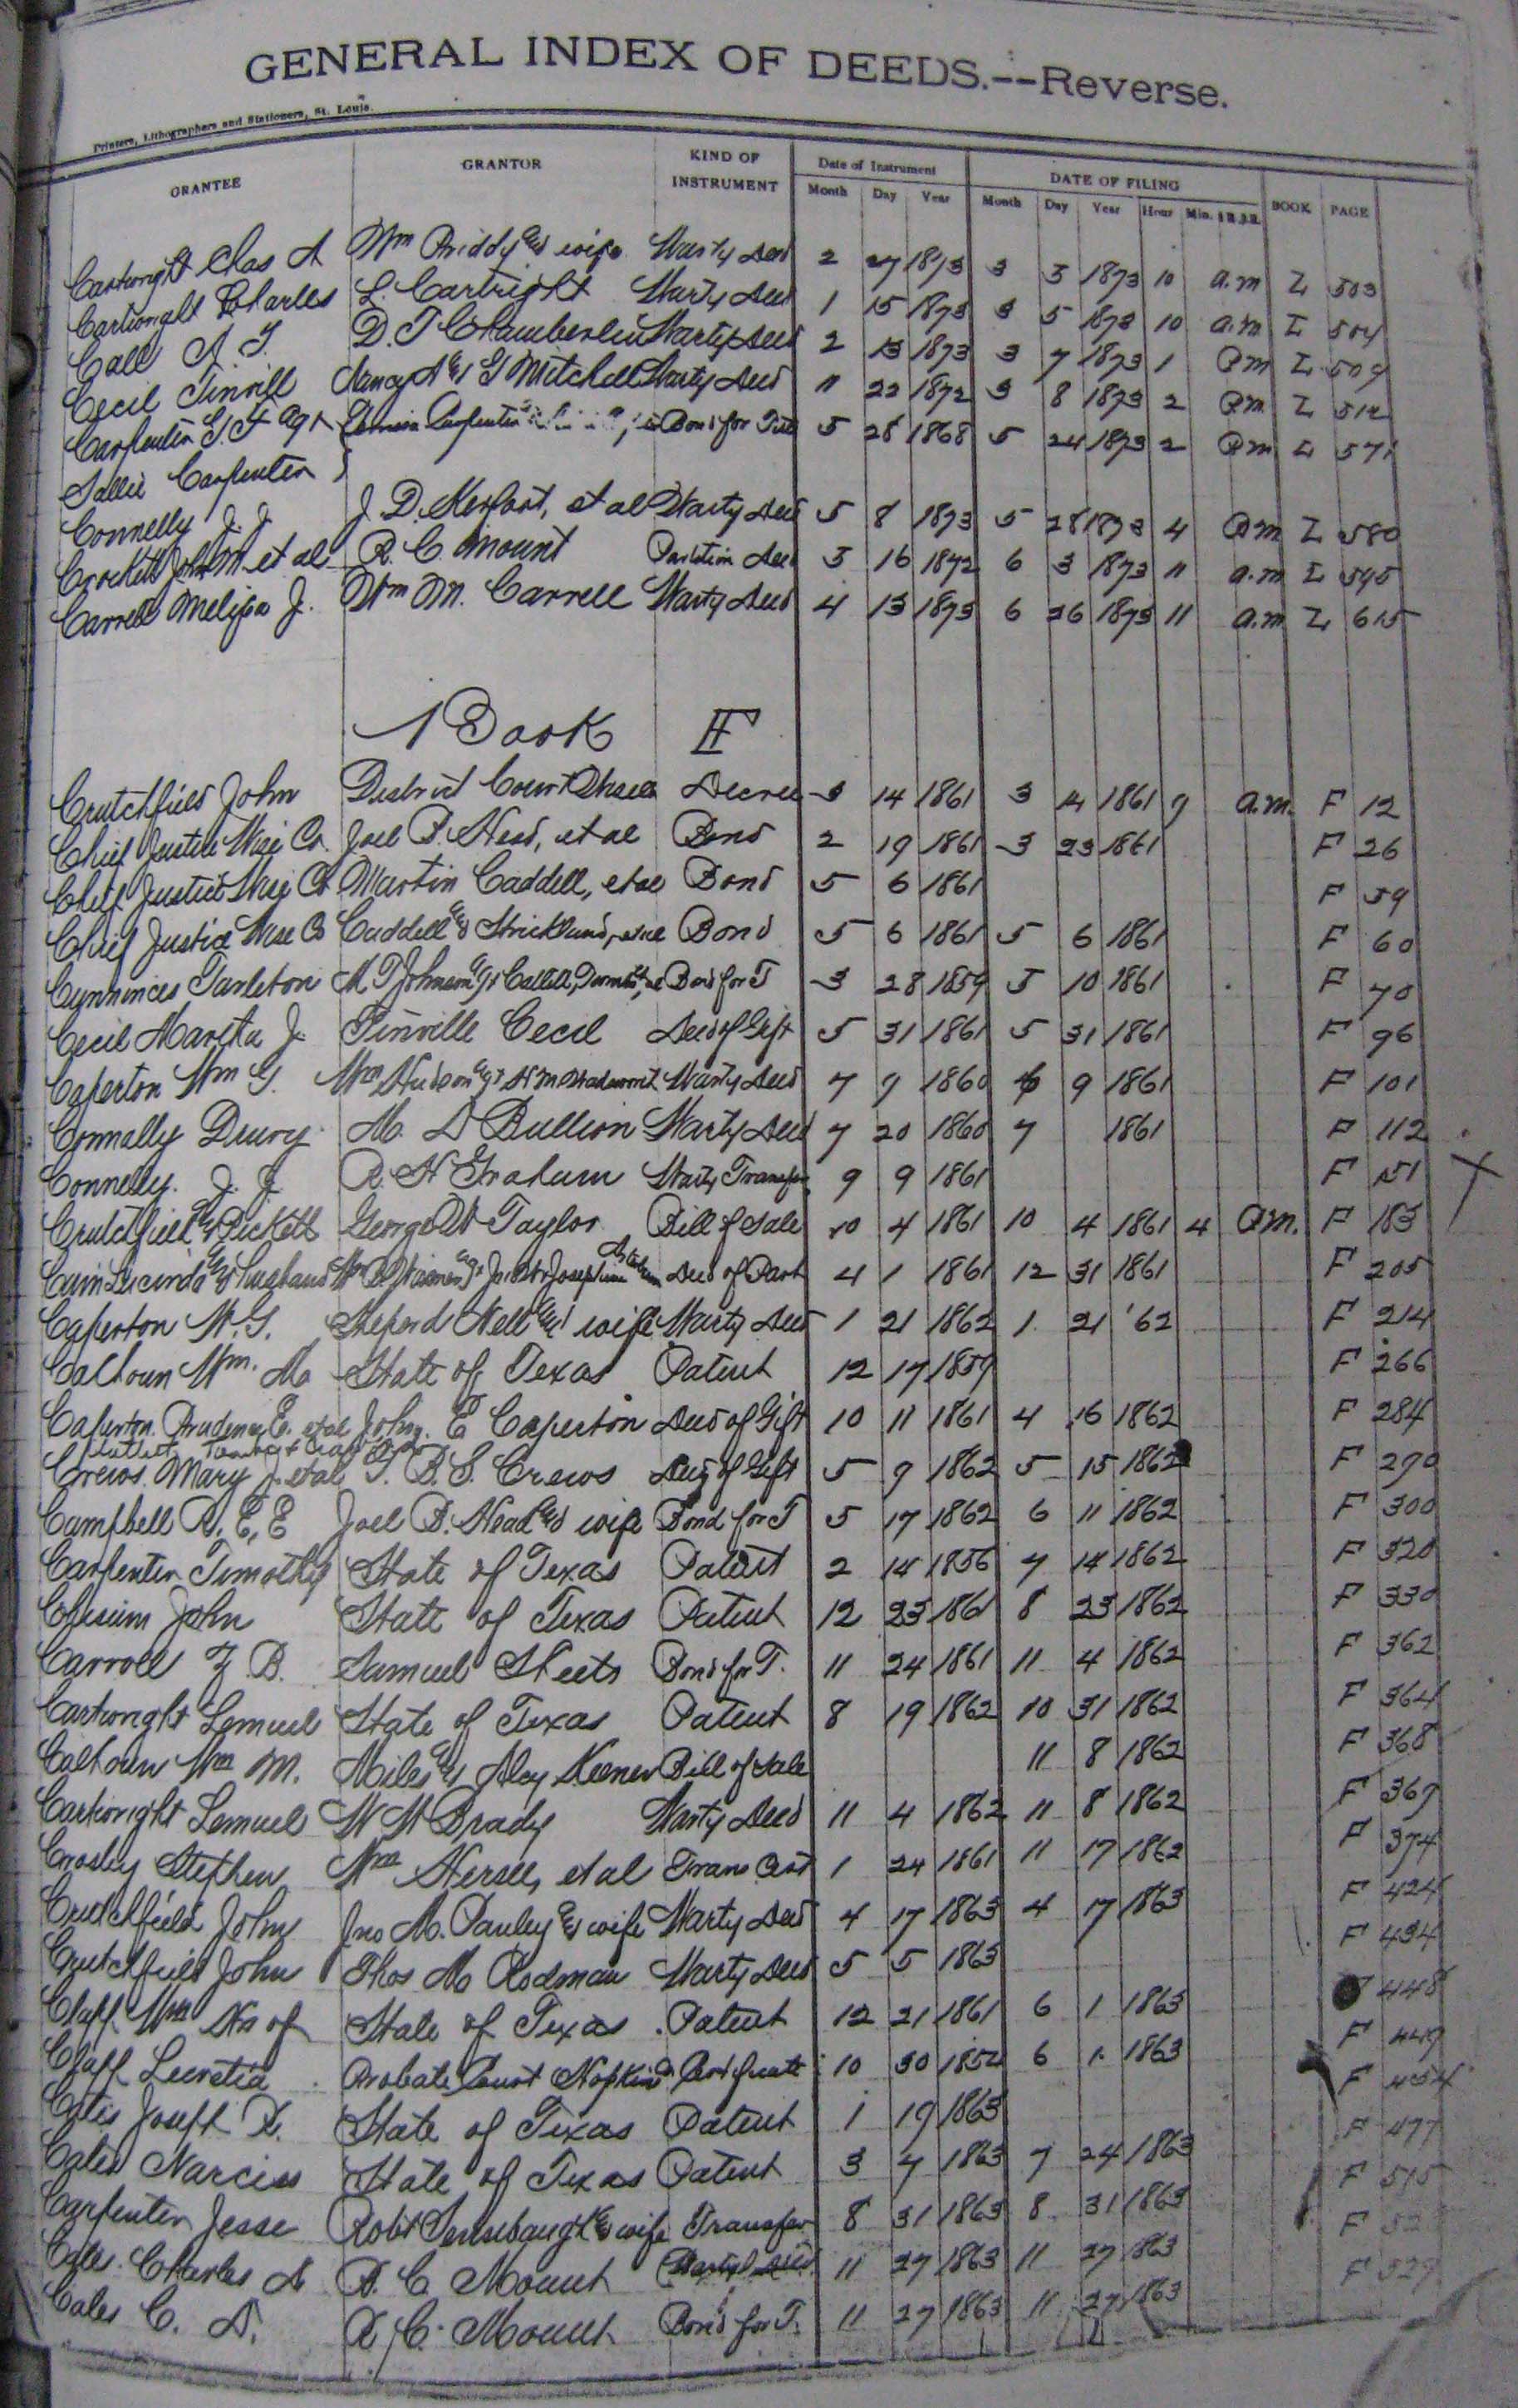 GENERAL INDEX OF DEEDS.--Reverse.
Printers, Lithographers and Stationers, St. Louis.
GRANTEE GRANTOR KIND OF INSTRUMENT Date of Instrument DATE OF FILING BOOK PAGE
Month Day Year Month Day Year Hour Min.
Cartwright Chas A Wm Priddy & wife Warty Deed 2 27 1873 3 3 1873 10 a.m L 503
Cartwright Charles L. Cartright Warty Deed 1 15 1873 3 5 1873 10 a.m L 504
Call A J. D. T Chamberlin Warty Deed 2 13 1873 3 7 1873 1 Pm L 509
Cecil Tinvill Nancy A & G Mitchell Warty Deed 11 22 1872 3 8 1873 2 Pm L 512
Carpenter G. F Carpenter Bond for Title 5 28 1868 5 24 1873 2 Pm L 571
Sallie Carpenter
Connelly J. J. J. D. Kerfoot, et al Warty Deed 5 8 1873 5 28 1873 4 Pm L 580
Crockett John M. et al R. C. Mount Partition Deed 3 16 1872 6 3 1873 11 a.m L 595
Carrell Melissa J. Wm M. Carrell Warty Deed 4 13 1873 6 26 1873 11 a.m L 615
Book F
Crutchfield John District Court Decree 3 14 1861 3 14 1861 9 a.m. F 12
Chief Justice Wise Co. Joel B. Head, et al Bond 2 19 1861 3 23 1861 F 26
Chief Justice Wise Co Martin Caddell, et al Bond 5 6 1861 F 59
Chief Justice Wise Co Caddell & Strickland, et al Bond 5 6 1861 5 6 1861 F 60
Tarleton M. T Johnson Bond for T 3 28 1859 5 10 1861 F 70
Cecil Maretta J. Tinville Cecil Deed of Gift 5 31 1861 5 31 1861 F 96
Caperton Wm G. Wm Hudson & Warty Deed 7 9 1860 6 9 1861 F 101
Connally Drury M. D Bullion Warty Deed 7 20 1860 7 1861 F 112
Connelly. J. J. R. H Graham Warty Transfer 9 9 1861 F 151
Crutchfield & Pickett George W Taylor Bill of Sale 10 4 1861 10 4 1861 4 Pm. F 183
Cain Lucinda & Husband Deed of Part 4 1 1861 12 31 1861 F 205
Caperton W. G. Sheperd Nell & wife Warty Deed 1 21 1862 1 21 '62 F 214
Calhoun Wm. M. State of Texas Patent 12 17 1859 F 266
Caperton. Prudence E. et al John. E Caperton Deed of Gift 10 11 1861 4 16 1862 F 284
Crews. Mary J. et al T. B. S. Crews Deed of Gift 5 9 1862 5 15 1862 F 290
Campbell R. E. E Joel B. Head & wife Bond for T 5 17 1862 6 11 1862 F 300
Carpenter Timothy State of Texas Patent 2 14 1856 7 14 1862 F 320
Chisum John State of Texas Patent 12 23 1861 8 23 1862 F 330
Carroll Z. B. Samuel Sheets Bond for T. 11 24 1861 11 4 1862 F 362
Cartwright Lemuel State of Texas Patent 8 19 1862 10 31 1862 F 364
Calhoun Wm M. Miles & Aley Keener Bill of Sale 11 8 1862 F 368
Cartwright Lemuel W H Brady Warty Deed 11 4 1862 11 8 1862 F 369
Crosby Stephen Wm Hersee, et al Trans Cert 1 24 1861 11 17 1862 F 374
Crutchfield John Jno M. Pauley & wife Warty Deed 4 17 1863 4 17 1863 F 424
Crutchfield John Thos M Rodman Warty Deed 5 5 1863 F 434
Claff Wm Hrs of State of Texas Patent 12 21 1861 6 1 1863 F 448
Claff Lucretia Probate Court Hopkins Certificate 10 30 1852 6 1. 1863 F 449
Joseph R. State of Texas Patent 1 19 1863 F 454
Cates Narciss State of Texas Patent 3 7 1863 7 24 1863 F 477
Carpenter Jesse Robt Sensebaugh & wife Transfer 8 31 1863 8 31 1863 F 515
Cates. Charles A R. C. Mount Warty Deed 11 27 1863 11 27 1863 F
Cates C. A. R. C. Mount Bond for T. 11 27 1863 11 27 1863 F 529